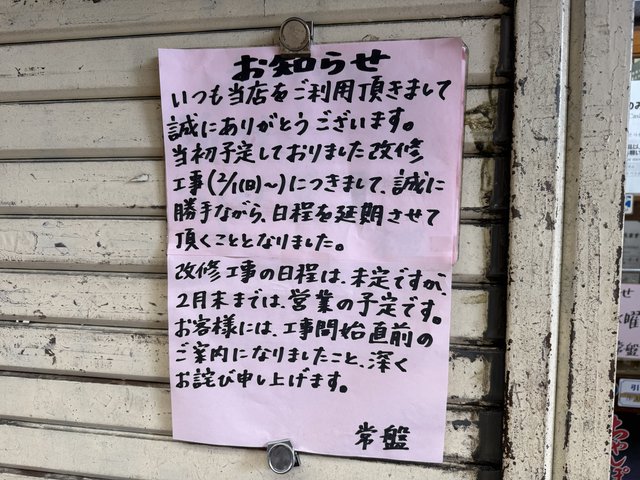 お知らせ
いつも当店をご利用頂きまして
誠にありがとうございます。
当初予定しておりました改修
工事(2/1(日)~)につきまして、誠に
勝手ながら、日程を延期させて
頂くこととなりました。
改修工事の日程は、未定ですが、
2月末までは、営業の予定です。
お客様には、工事開始直前の
ご案内になりましたこと、深く
お詫び申し上げます。
常盤